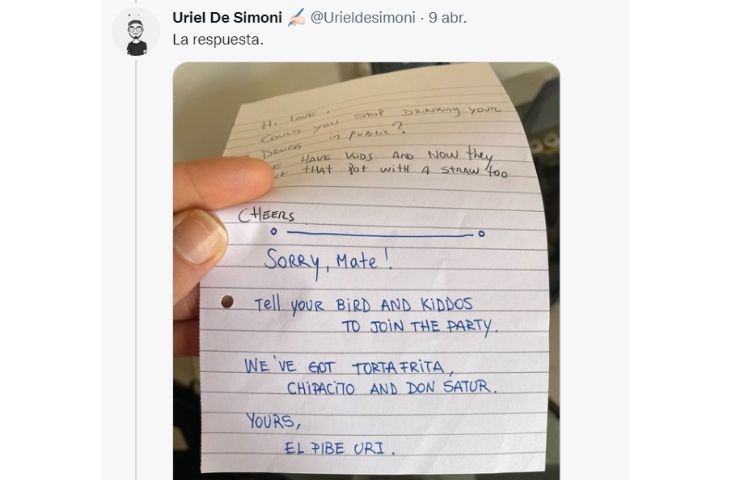 Uriel De Simoni ✍🏻 @Urieldesimoni · 9 abr.
La respuesta.
Hi love,
Could you stop drinking your
Drugs in public?
HAVE KIDS AND NOW they
THAT Pot WITH A STRAW too
CHEERS
SORRY, Mate!
Tell YOUR BIRD AND KIDDOS
TO JOIN THE PARTY.
WE'VE GOT TORTA FRITA,
CHIPACITO AND DON SATUR.
YOURS,
EL PIBE URI.